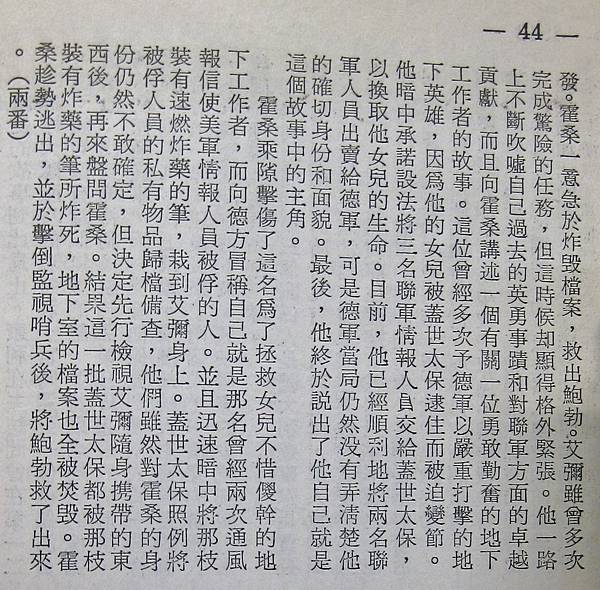 — 44 —
發。霍桑一意急於炸毀檔案，救出鮑勃。艾彌雖曾多次
完成驚險的任務，但這時候却顯得格外緊張。他一路
上不斷吹噓自己過去的英勇事蹟和對聯軍方面的卓越
貢獻，而且向霍桑講述一個有關一位勇敢勤奮的地下
工作者的故事。這位曾經多次予德軍以嚴重打擊的地
下英雄，因爲他的女兒被蓋世太保逮住而被迫變節。
他暗中承諾設法將三名聯軍情報人員交給蓋世太保，
以換取他女兒的生命。目前，他已經順利地將兩名聯
軍人員出賣給德軍，可是德軍當局仍然没有弄清楚他
的確切身份和面貌。最後，他終於説出了他自己就是
這個故事中的主角。
霍桑乘隙擊傷了這名爲了拯救女兒不惜傻幹的地
下工作者，而向德方冒稱自己就是那名曾經兩次通風
報信使美軍情報人員被俘的人。並且迅速暗中將那枝
裝有速燃炸藥的筆，栽到艾彌身上。蓋世太保照例將
被俘人員的私有物品歸檔備查，他們雖然對霍桑的身
份仍然不敢確定，但決定先行檢視艾彌隨身携帶的東
西後，再來盤問霍桑。結果這一批蓋世太保都被那枝
裝有炸藥的筆所炸死，地下室的檔案也全被焚毀。霍
桑趁勢逃出，並於擊倒監視哨兵後，將鮑勃救了出來
。（兩番）